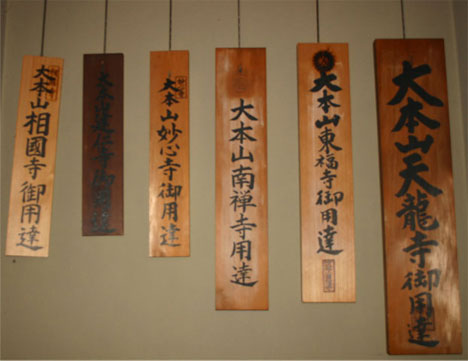 大本山天龍寺御用達
大本山東福寺御用達
大本山南禅寺用達
大本山妙心寺御用達
大本山建仁寺御用達
大本山相國寺御用達